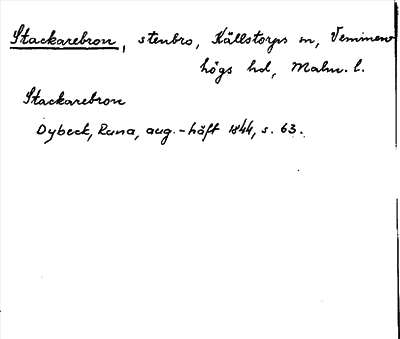 Stackarebron, stenbro, Källstorps sn, Vemmen
högs hd, Malm. l.
Stackarebron
Dybeck, Runa, aug.-häft 1844, s. 63.